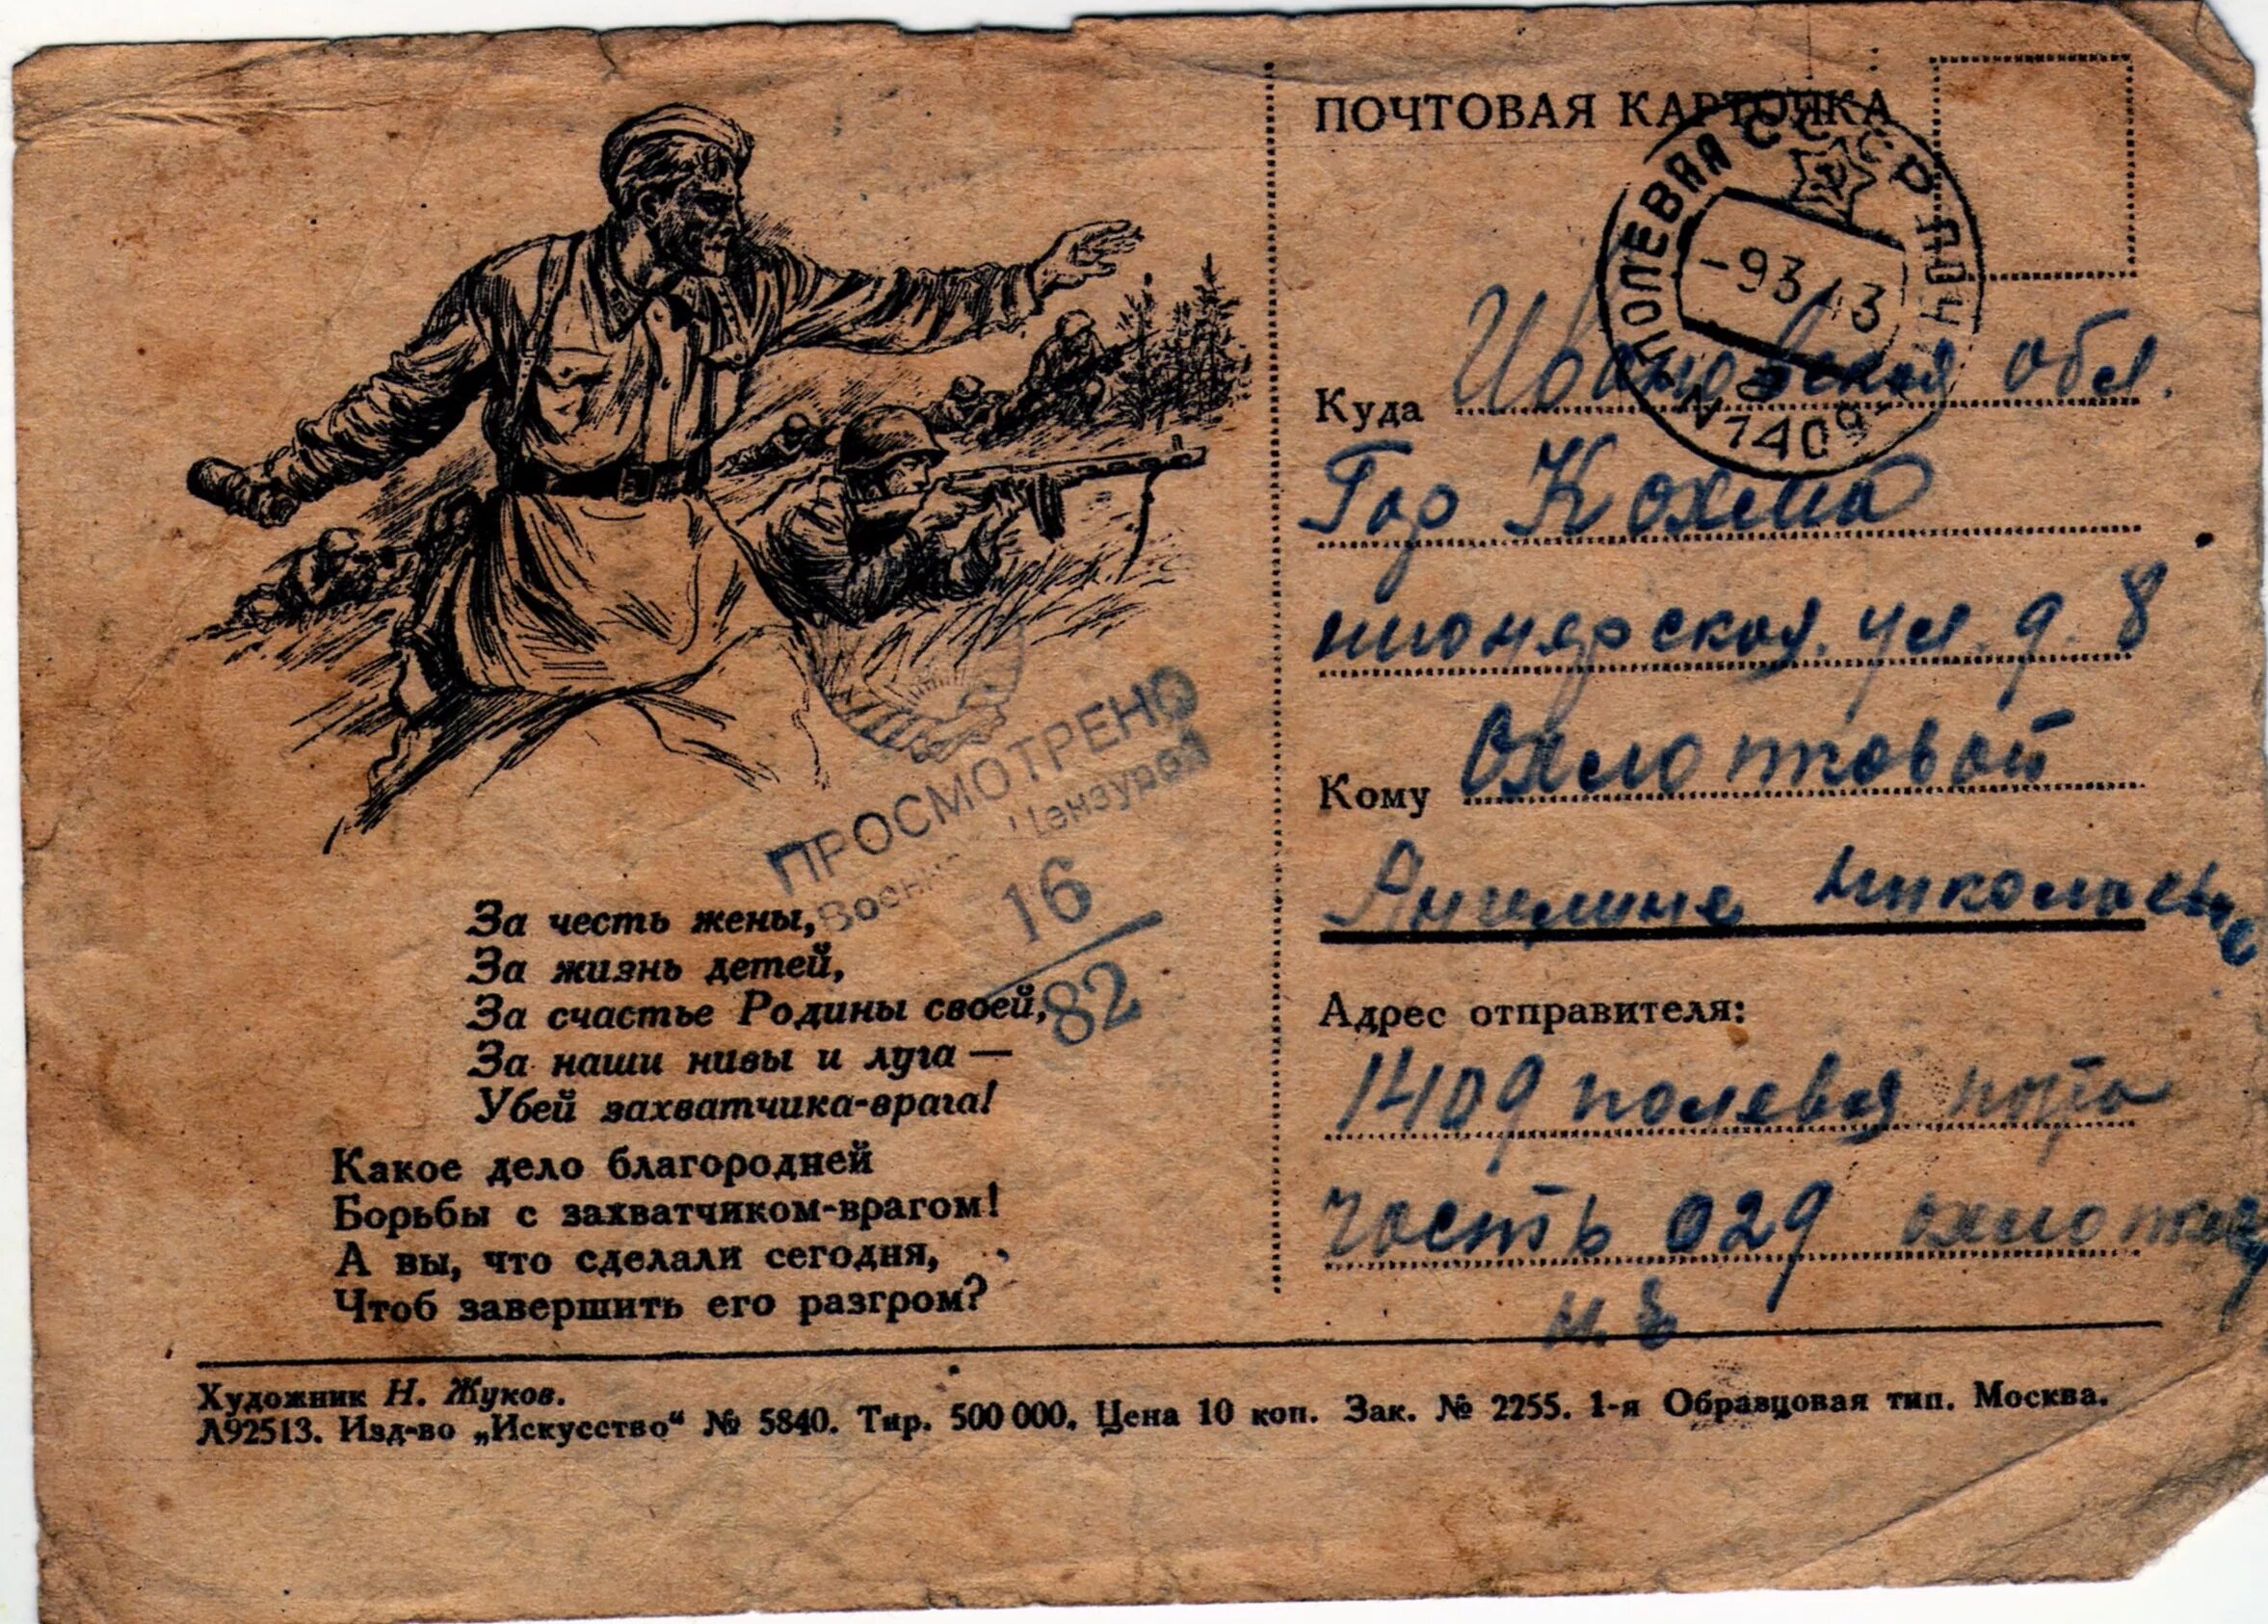 За честь жены,
За жизнь детей,
За счастье Родины своей,
За наши нивы и луга —
Убей захватчика-врага!
Какое дело благородней
Борьбы с захватчиком-врагом!
А вы, что сделали сегодня,
Чтоб завершить его разгром?
ПРОСМОТРЕНО
Военной Цензурой
16
82
Художник Н. Жуков.
Л92513. Изд-во „Искусство“ № 5840. Тир. 500 000. Цена 10 коп. Зак. № 2255. 1-я Образцовая тип. Москва.
ПОЧТОВАЯ КАРТОЧКА
СССР
ПОЛЕВАЯ ПОЧ
-9 3 43
N 1409
Куда Ивановская обл.
Гор Кохма
пионерская. ул. д. 8
Кому Охлопковой
Ангелине Николаевне
Адрес отправителя:
1409 полевая почта
часть 029